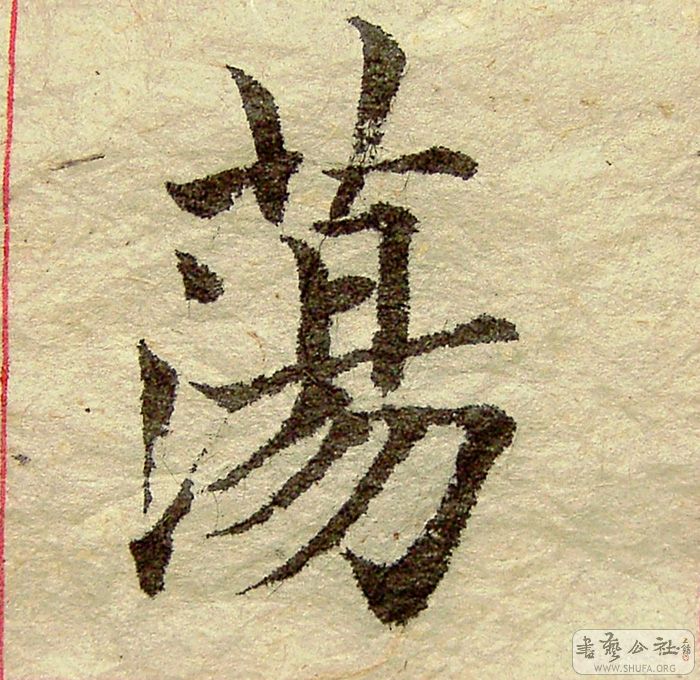 蕩
書藝公社
WWW.SHUFA.ORG